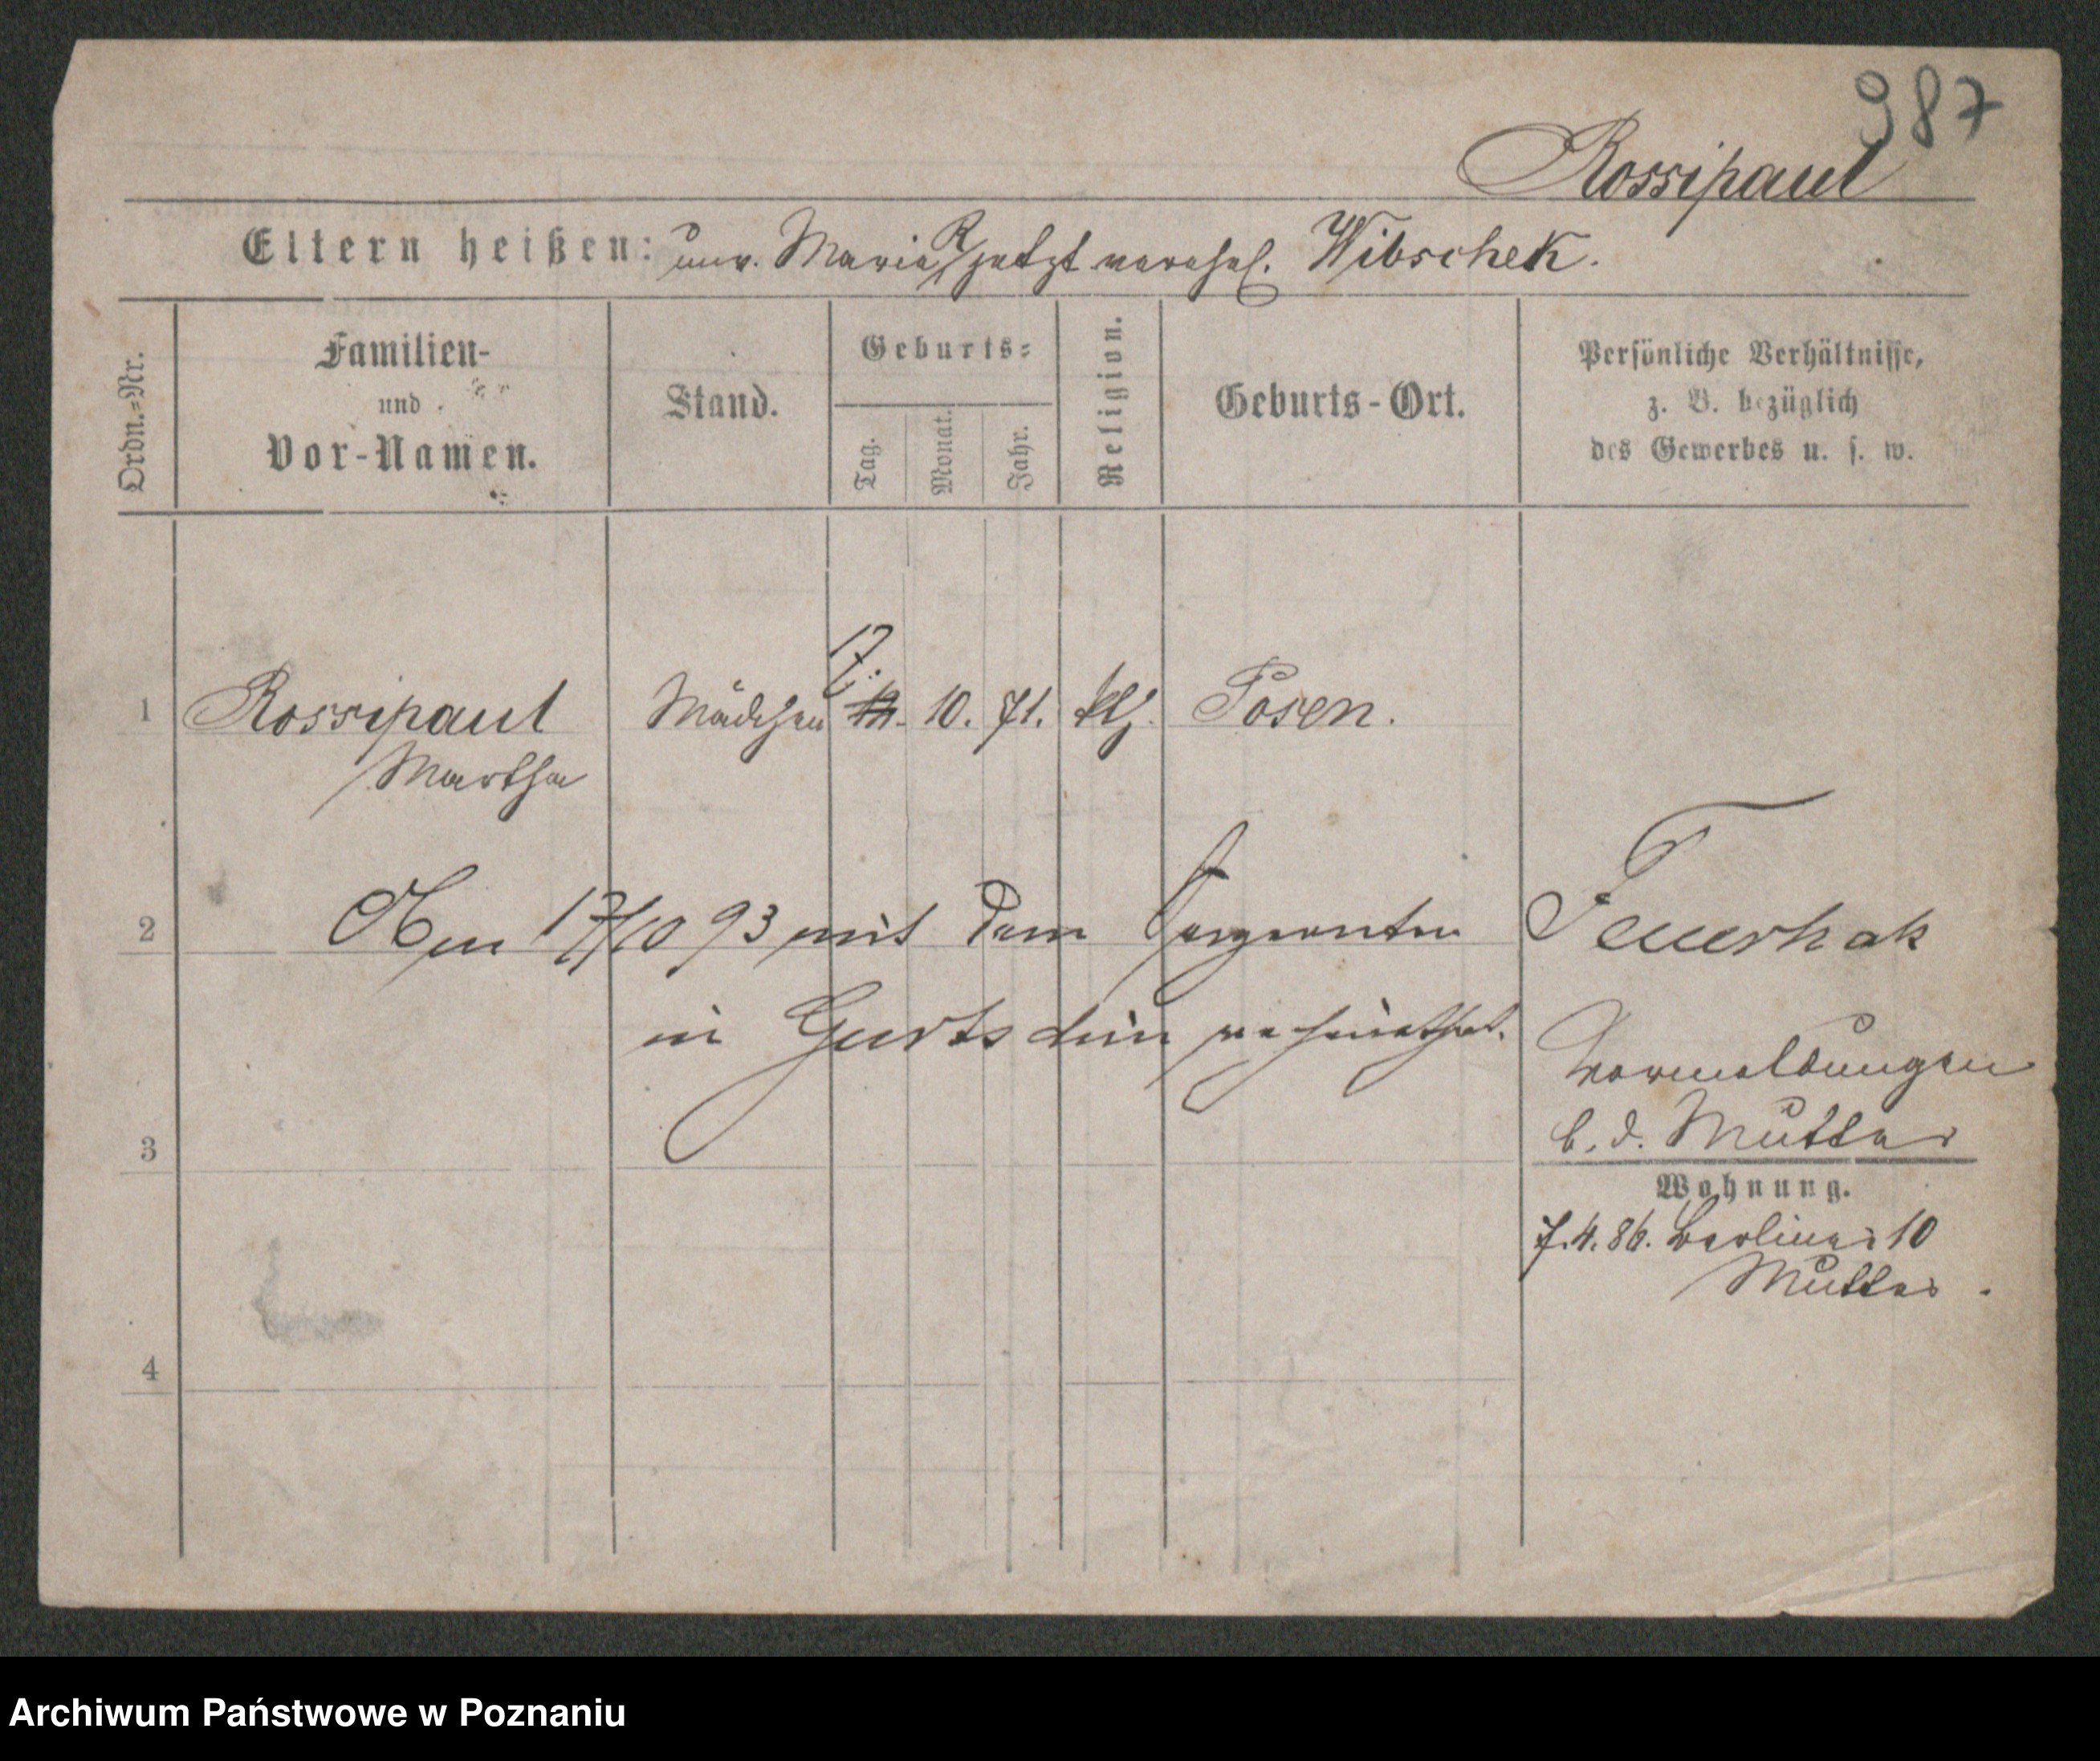 987
Rossipaul
Eltern heißen: unv. Maria R jetzt verehel. Wibschek.
Ordn.=Nr.
Familien-
und
Vor-Namen.
Stand.
Geburts=
Tag.
Monat.
Jahr.
Religion.
Geburts-Ort.
Persönliche Verhältnisse,
z. B. bezüglich
des Gewerbes u. s. w.
17.
1 Rossipaul Mädchen 10. 71. Posen.
Martha
2 Am 17/10 93 mit dem Sergeanten Feuerhak
in verheirathet.
Vormeldungen
b. d. Mutter
3
Wohnung.
7.4.86. Berliner 10
Mutter.
4
Archiwum Państwowe w Poznaniu